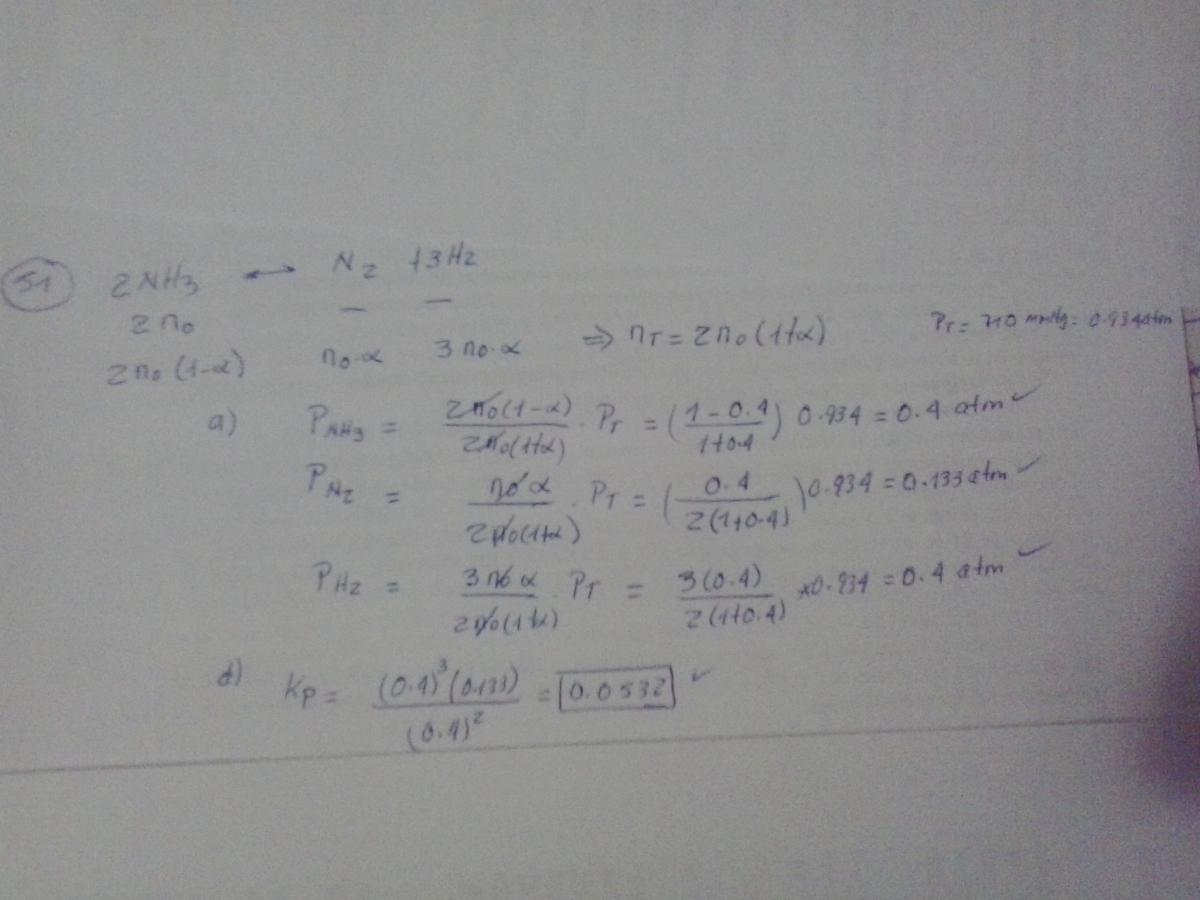 51 2NH3 ↔ N2 +3H2
2n0 — —
2n0(1-α) n0·α 3n0·α ⇒ nT = 2n0(1+α) PT = 710 mmHg = 0.934atm
a) PNH3 = 2n0(1-α)/2n0(1+α) · PT = (1-0.4/1+0.4) 0.934 = 0.4 atm ✓
PN2 = n0α/2n0(1+α) · PT = (0.4/2(1+0.4)) 0.934 = 0.133atm ✓
PH2 = 3n0α/2n0(1+α) · PT = 3(0.4)/2(1+0.4) ×0.934 = 0.4 atm ✓
d) Kp = (0.4)³(0.133)/(0.4)² = 0.0532 ✓